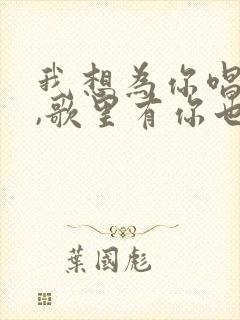 我想为你唱
,歌里有你也
葉國彪